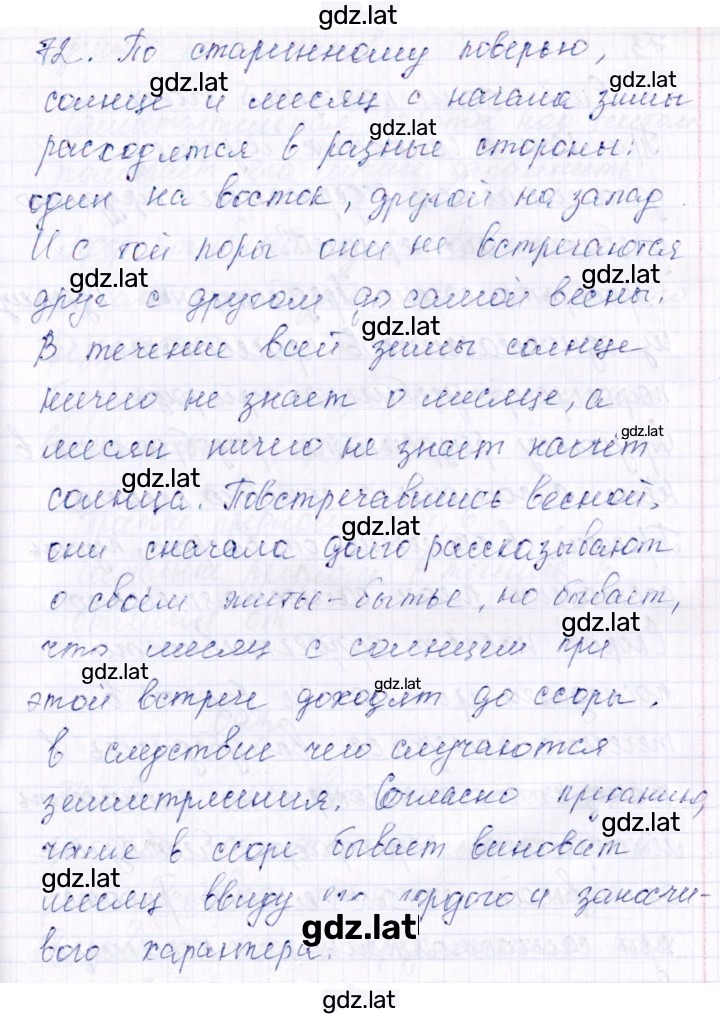 gdz.lat
72. По старинному поверью,
gdz.lat
солнце и месяц с начала зимы
gdz.lat
расходятся в разные стороны:
один на восток, другой на запад.
И с той поры они не встречаются
gdz.lat gdz.lat
друг с другом до самой весны.
gdz.lat
В течение всей зимы солнце
ничего не знает о месяце, а
gdz.lat
месяц ничего не знает насчёт
gdz.lat
солнца. Повстречавшись весной,
gdz.lat
они сначала долго рассказывают
о своём житье-бытье, но бывает,
gdz.lat
что месяц с солнцем при
gdz.lat gdz.lat
этой встрече доходят до ссоры,
в следствие чего случаются
землетрясения. Согласно преданию,
gdz.lat
чаще в ссоре бывает виноват
gdz.lat
месяц ввиду его гордого и заносчи-
gdz.lat
вого характера.
gdz.lat